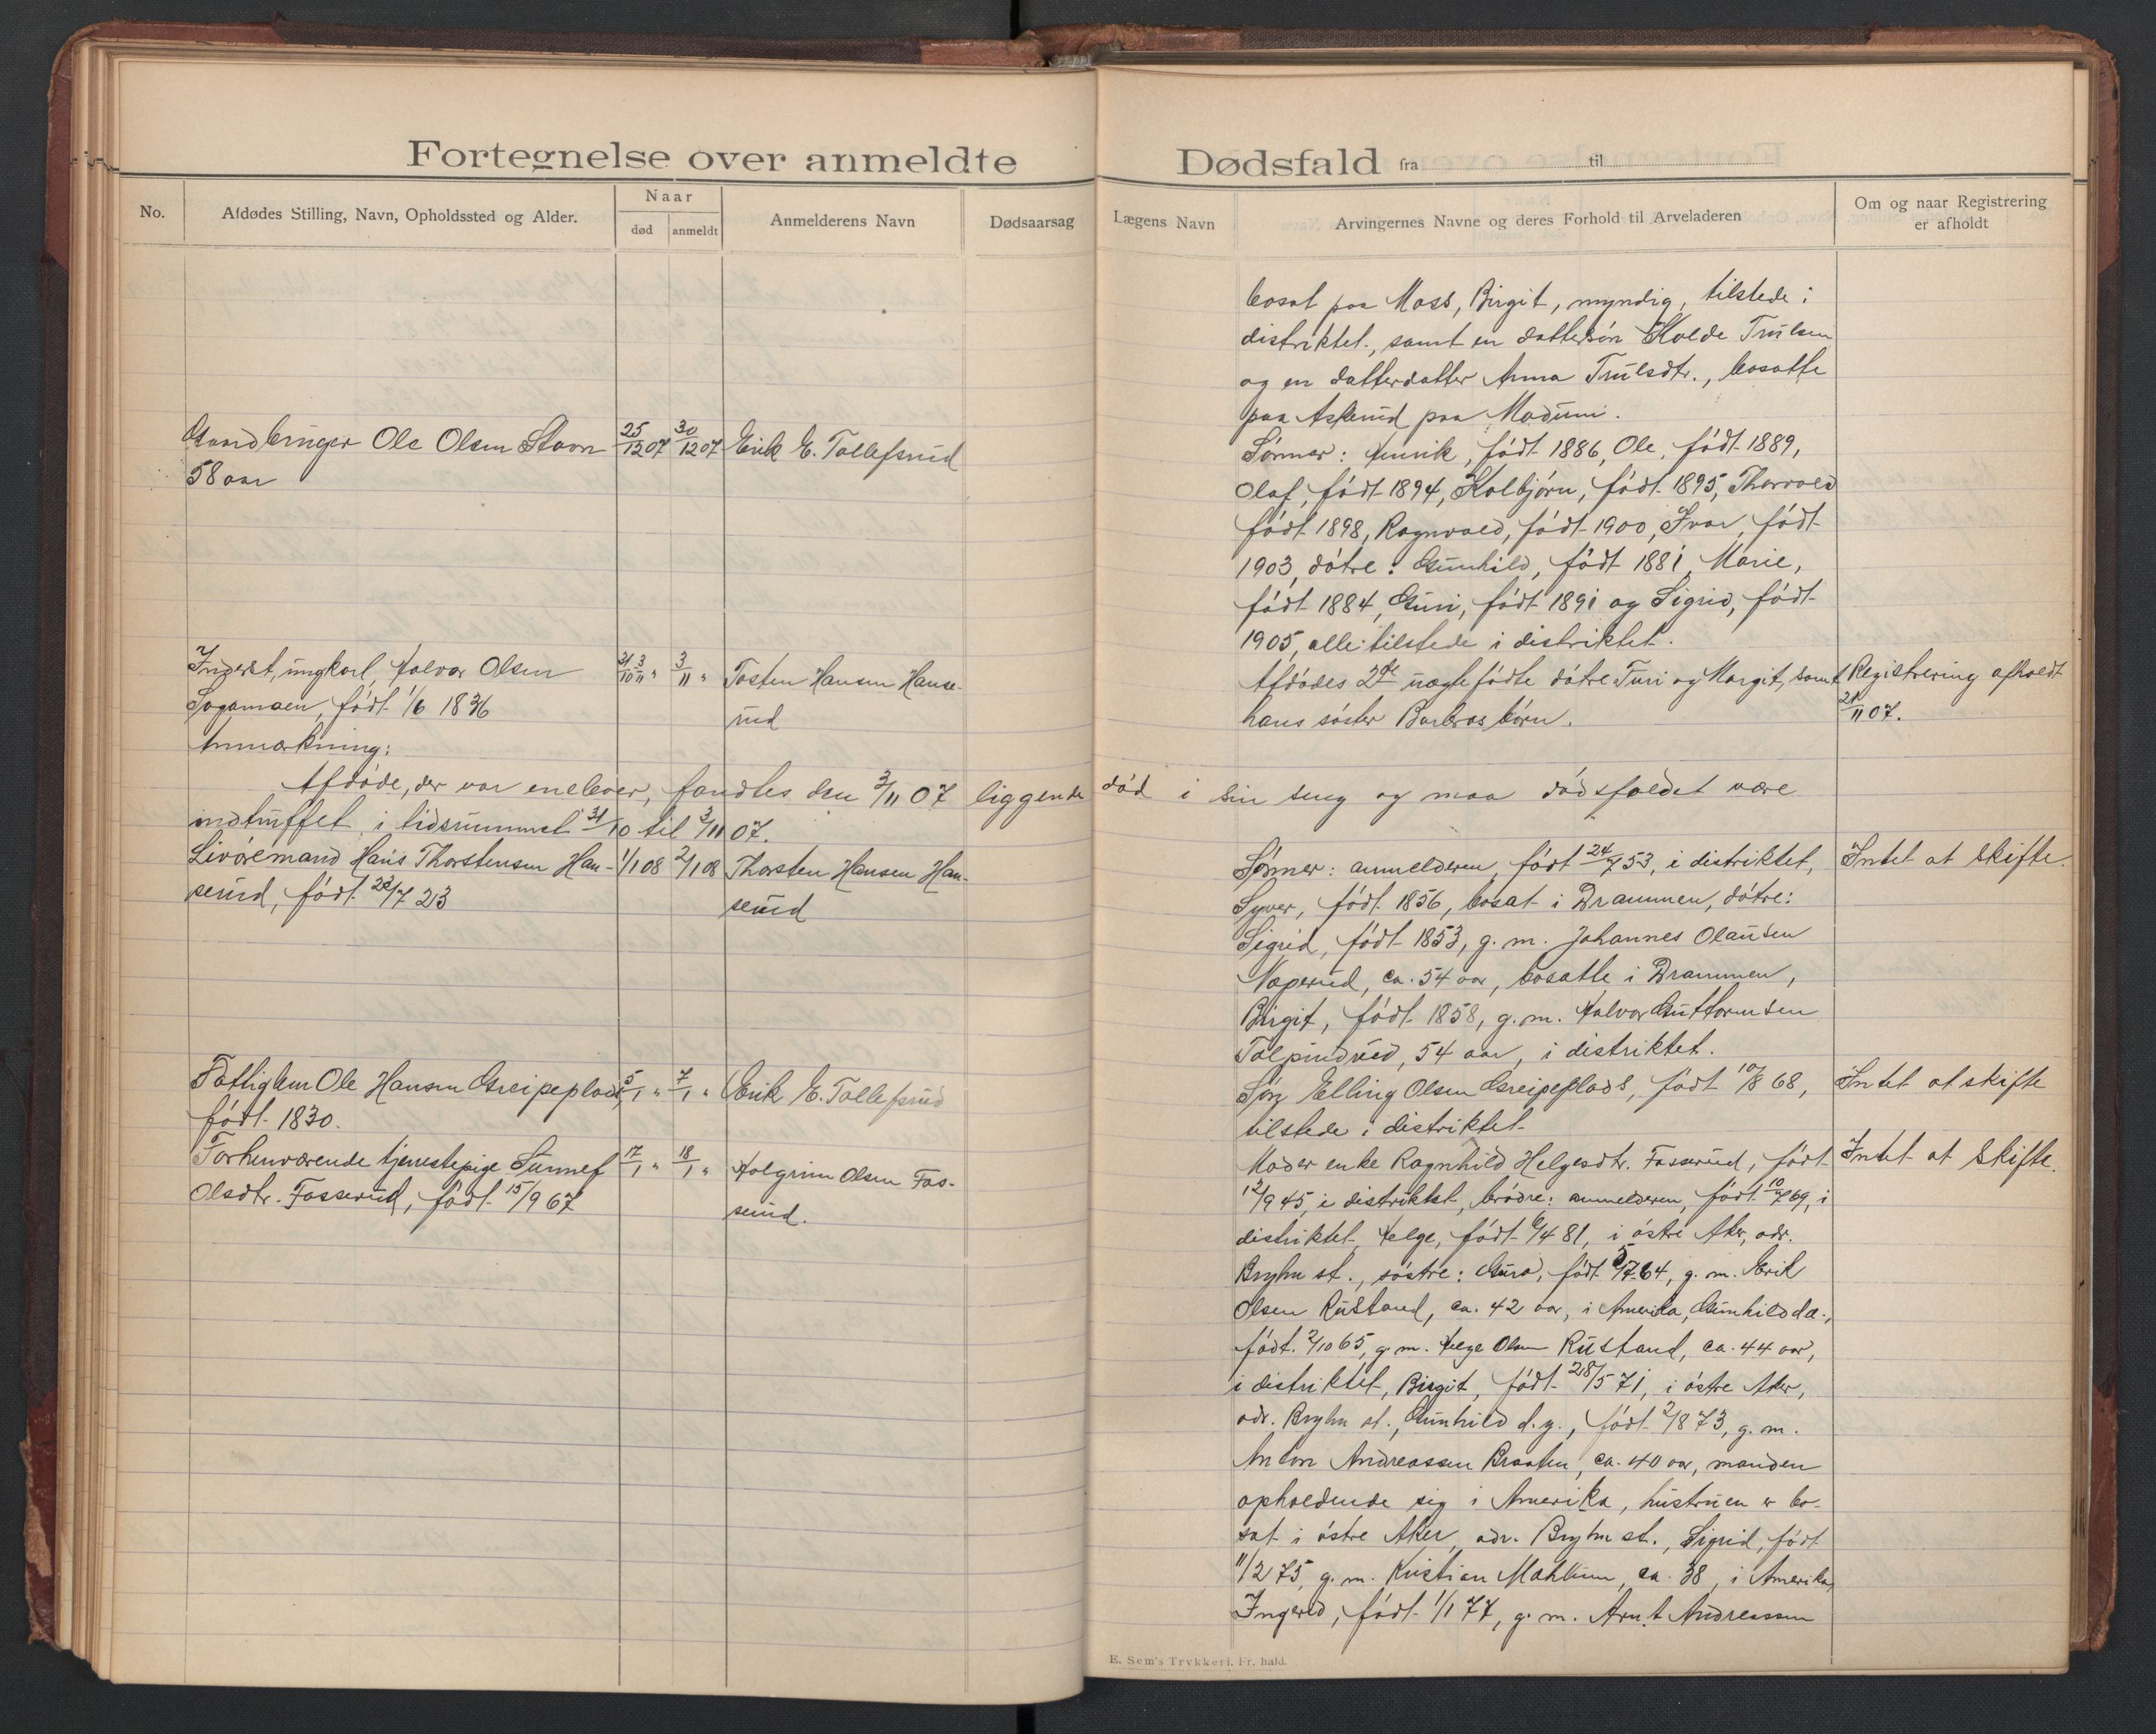 Fortegnelse over anmeldte Dødsfald fra til
No.
Afdødes Stilling, Navn, Opholdssted og Alder.
Naar
død anmeldt
Anmelderens Navn
Dødsaarsag
Lægens Navn
Arvingernes Navne og deres Forhold til Arveladeren
Om og naar Registrering
er afholdt
bosat paa Moss, Birgit, myndig, tilstede i
distriktet, samt en dattersøn Trulsen
og en datterdatter Anna Trulsdtr., bosatte
paa Askerud paa Modum.
Gaardbruger Ole Olsen Stavn 25/12 07 30/12 07 Erik E. Tollefsrud
58 aar
Sønner: Henrik, født 1886, Ole, født 1889,
Olaf, født 1894, Kolbjørn, født 1895, Thorvald
født 1898, Ragnvald, født 1900, Ivar, født
1903, døtre: Gunhild, født 1881, Marie,
født 1884, Guri, født 1891 og Sigrid, født
1905, alle tilstede i distriktet.
Inderst, ungkarl, Halvor Olsen 31/10 3/11 " 3/11 " Tosten Hansen Hanse-
Sogamoen, født 1/6 1836 rud
Afdødes 2de uægtefødte døtre Turi og Margit, samt
hans søster Barbros børn.
Registrering afholdt
21/11 07.
Anmærkning:
Afdøde, der var eneboer, fandtes den 3/11 07 liggende død i sin seng og maa dødsfaldet være
indtruffet i tidsrummet 31/10 til 3/11 07.
Livøremand Hans Thorstensen Han- 1/1 08 2/1 08 Thorsten Hansen Han-
serud, født 22/7 23 serud
Sønner: anmelderen, født 24/7 53, i distriktet, Intet at skifte.
Syver, født 1856, bosat i Drammen, døtre:
Sigrid, født 1853, g. m. Johannes Olausen
Noperud, ca. 54 aar, bosatte i Drammen,
Birgit, født 1858, g. m. Halvor Guttormsen
Tolpinrud, 54 aar, i distriktet.
Fattiglem Ole Hansen Greipeplads, 5/1 " 7/1 " Erik E. Tollefsrud
født 1830.
Søn Elling Olsen Greipeplads, født 10/8 68, Intet at skifte
tilstede i distriktet
Forhenværende tjenestepige Sunnef 17/1 " 18/1 " Holgrim Olsen Fos-
Olsdtr. Fosserud, født 15/9 67 serud.
Moder enke Ragnhild Helgesdtr. Fosserud, født Intet at skifte.
12/9 45, i distriktet, brødre: anmelderen, født 10/7 69, i
distriktet, Helge, født 6/4 81, i østre Aker, adr.
Bryhn st., søstre: Guro, født 5/7 64, g. m. Erik
Olsen Rustand, ca. 42 aar, i Amerika, Gunhild d. æ.,
født 2/10 65, g. m. Helge Olsen Rustand, ca. 44 aar,
i distriktet, Birgit, født 28/5 71, i østre Aker,
adr. Bryhn st., Gunhild d. y., født 2/8 73, g. m.
Anton Andreassen Braaten, ca. 40 aar, manden
opholdende sig i Amerika, hustruen er bo-
sat i østre Aker, adr. Bryhn st., Sigrid, født
11/2 75, g. m. Kristian ca. 38, i Amerika,
Ingerid, født 1/1 77, g. m. Arnt Andreassen
E. Sem's Trykkeri, Fr. hald.